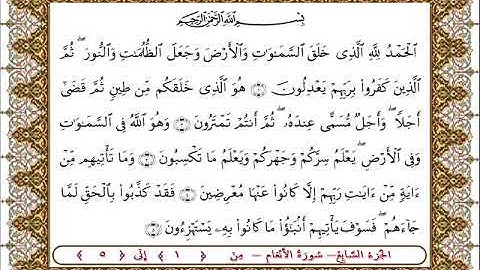 بِسْمِ ٱللَّهِ ٱلرَّحْمَٰنِ ٱلرَّحِيمِ
ٱلْحَمْدُ لِلَّهِ ٱلَّذِى خَلَقَ ٱلسَّمَٰوَٰتِ وَٱلْأَرْضَ وَجَعَلَ ٱلظُّلُمَٰتِ وَٱلنُّورَ ۖ ثُمَّ
ٱلَّذِينَ كَفَرُوا۟ بِرَبِّهِمْ يَعْدِلُونَ ۝ هُوَ ٱلَّذِى خَلَقَكُم مِّن طِينٍ ثُمَّ قَضَىٰٓ
أَجَلًا ۖ وَأَجَلٌ مُّسَمًّى عِندَهُۥ ۖ ثُمَّ أَنتُمْ تَمْتَرُونَ ۝ وَهُوَ ٱللَّهُ فِى ٱلسَّمَٰوَٰتِ
وَفِى ٱلْأَرْضِ ۖ يَعْلَمُ سِرَّكُمْ وَجَهْرَكُمْ وَيَعْلَمُ مَا تَكْسِبُونَ ۝ وَمَا تَأْتِيهِم مِّنْ
ءَايَةٍ مِّنْ ءَايَٰتِ رَبِّهِمْ إِلَّا كَانُوا۟ عَنْهَا مُعْرِضِينَ ۝ فَقَدْ كَذَّبُوا۟ بِٱلْحَقِّ لَمَّا
جَآءَهُمْ ۖ فَسَوْفَ يَأْتِيهِمْ أَنۢبَٰٓؤُا۟ مَا كَانُوا۟ بِهِۦ يَسْتَهْزِءُونَ ۝
الجزء السابع - سورة الأنعام - من ﴿ ١ ﴾ إلى ﴿ ٥ ﴾